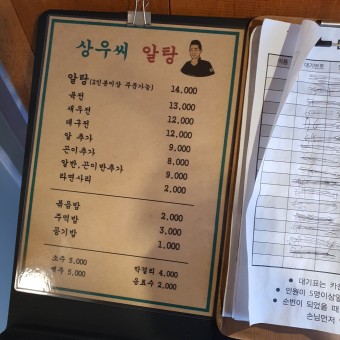 상우씨 알탕
알탕(2인분이상 주문가능) 14,000
육전 13,000
새우전 12,000
대구전 12,000
알 추가 9,000
곤이추가 8,000
알반,곤이반추가 9,000
라면사리 2,000
볶음밥 2,000
주먹밥 3,000
공기밥 1,000
소주 5,000 막걸리 4,000
맥주 5,000 음료수 2,000
이름 대기번호
● 대기표는 카
● 인원이 5명이상일
● 순번이 되었을 때
손님먼저